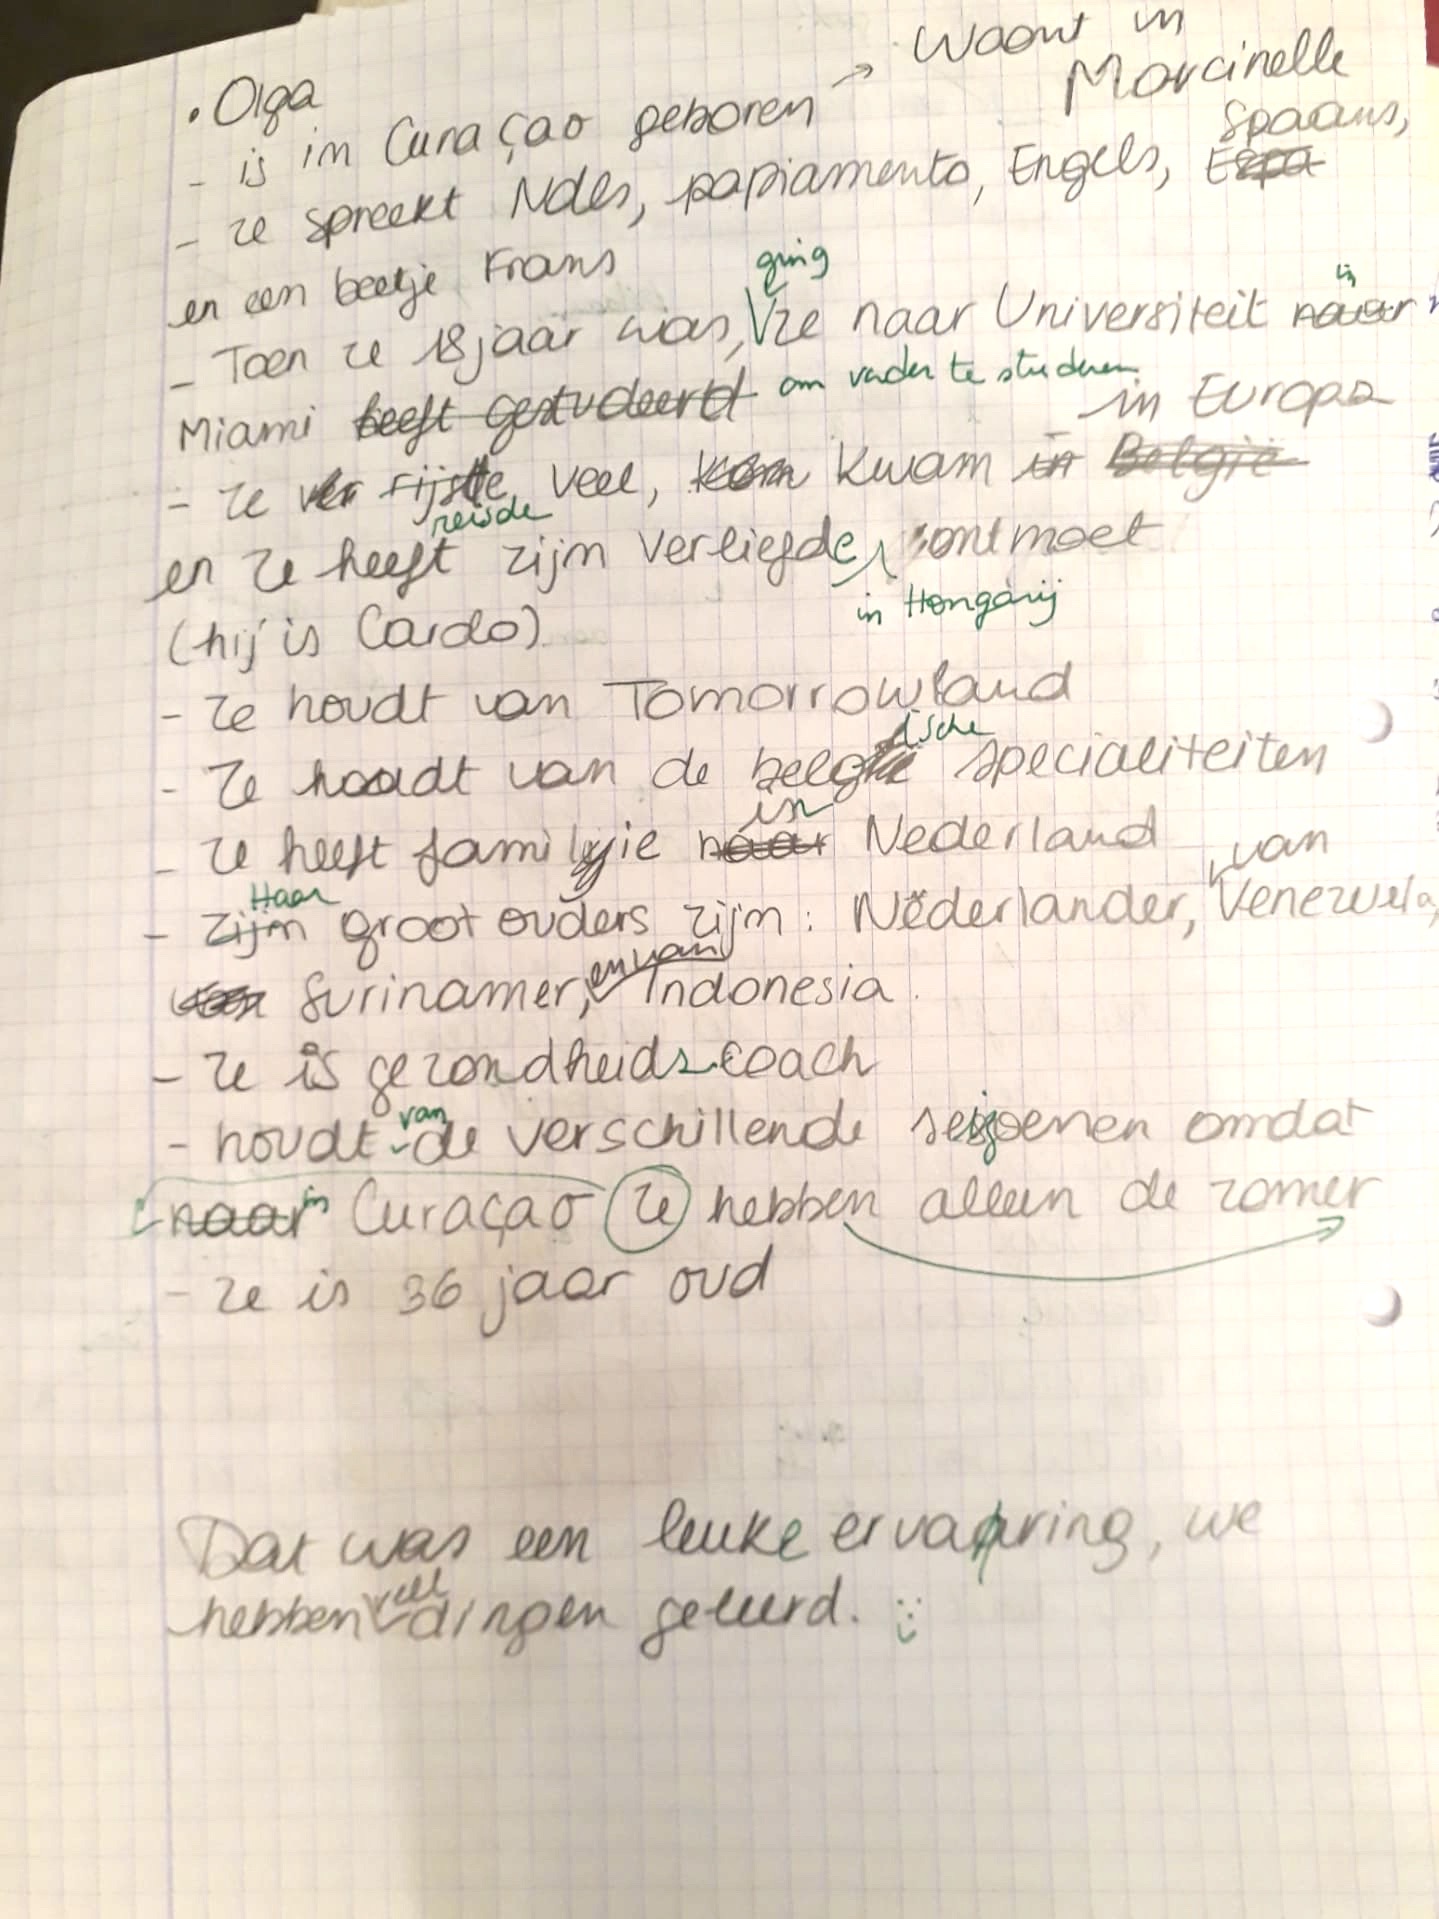 → Woont in
Marcinelle
• Olga
- is in Curaçao geboren
Spaans,
- ze spreekt Ndls, papiamento, Engels, Espa
en een beetje Frans
ging
in
- Toen ze 18 jaar was, ze naar Universiteit naar
Miami heeft gestudeerd om verder te studeren
in Europa
- ze rijste veel, kom kwam in België
reisde
en ze heeft zijn verliefde ontmoet
in Hongarij
(hij is Cardo)
- ze houdt van Tomorrowland
ische
- Ze houdt van de belg specialiteiten
in
- ze heeft familyie naar Nederland
van
Haar
- zijn grootouders zijn : Nederlander, Venezuela,
en van
Surinamer, Indonesia.
- ze is gezondheidscoach
van
- houdt de verschillende seizoenen omdat
naar in Curaçao ze hebben alleen de zomer
- ze is 36 jaar oud
Dat was een leuke ervaring, we
veel
hebben dingen geleerd. :)